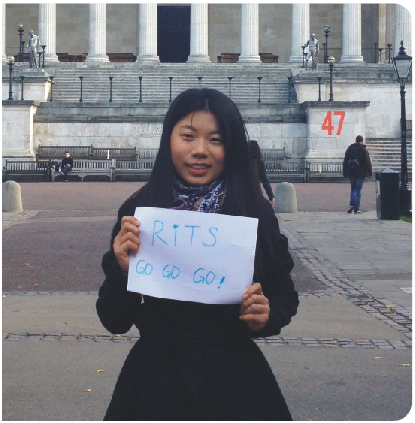 47
RiTS
GO GO GO!